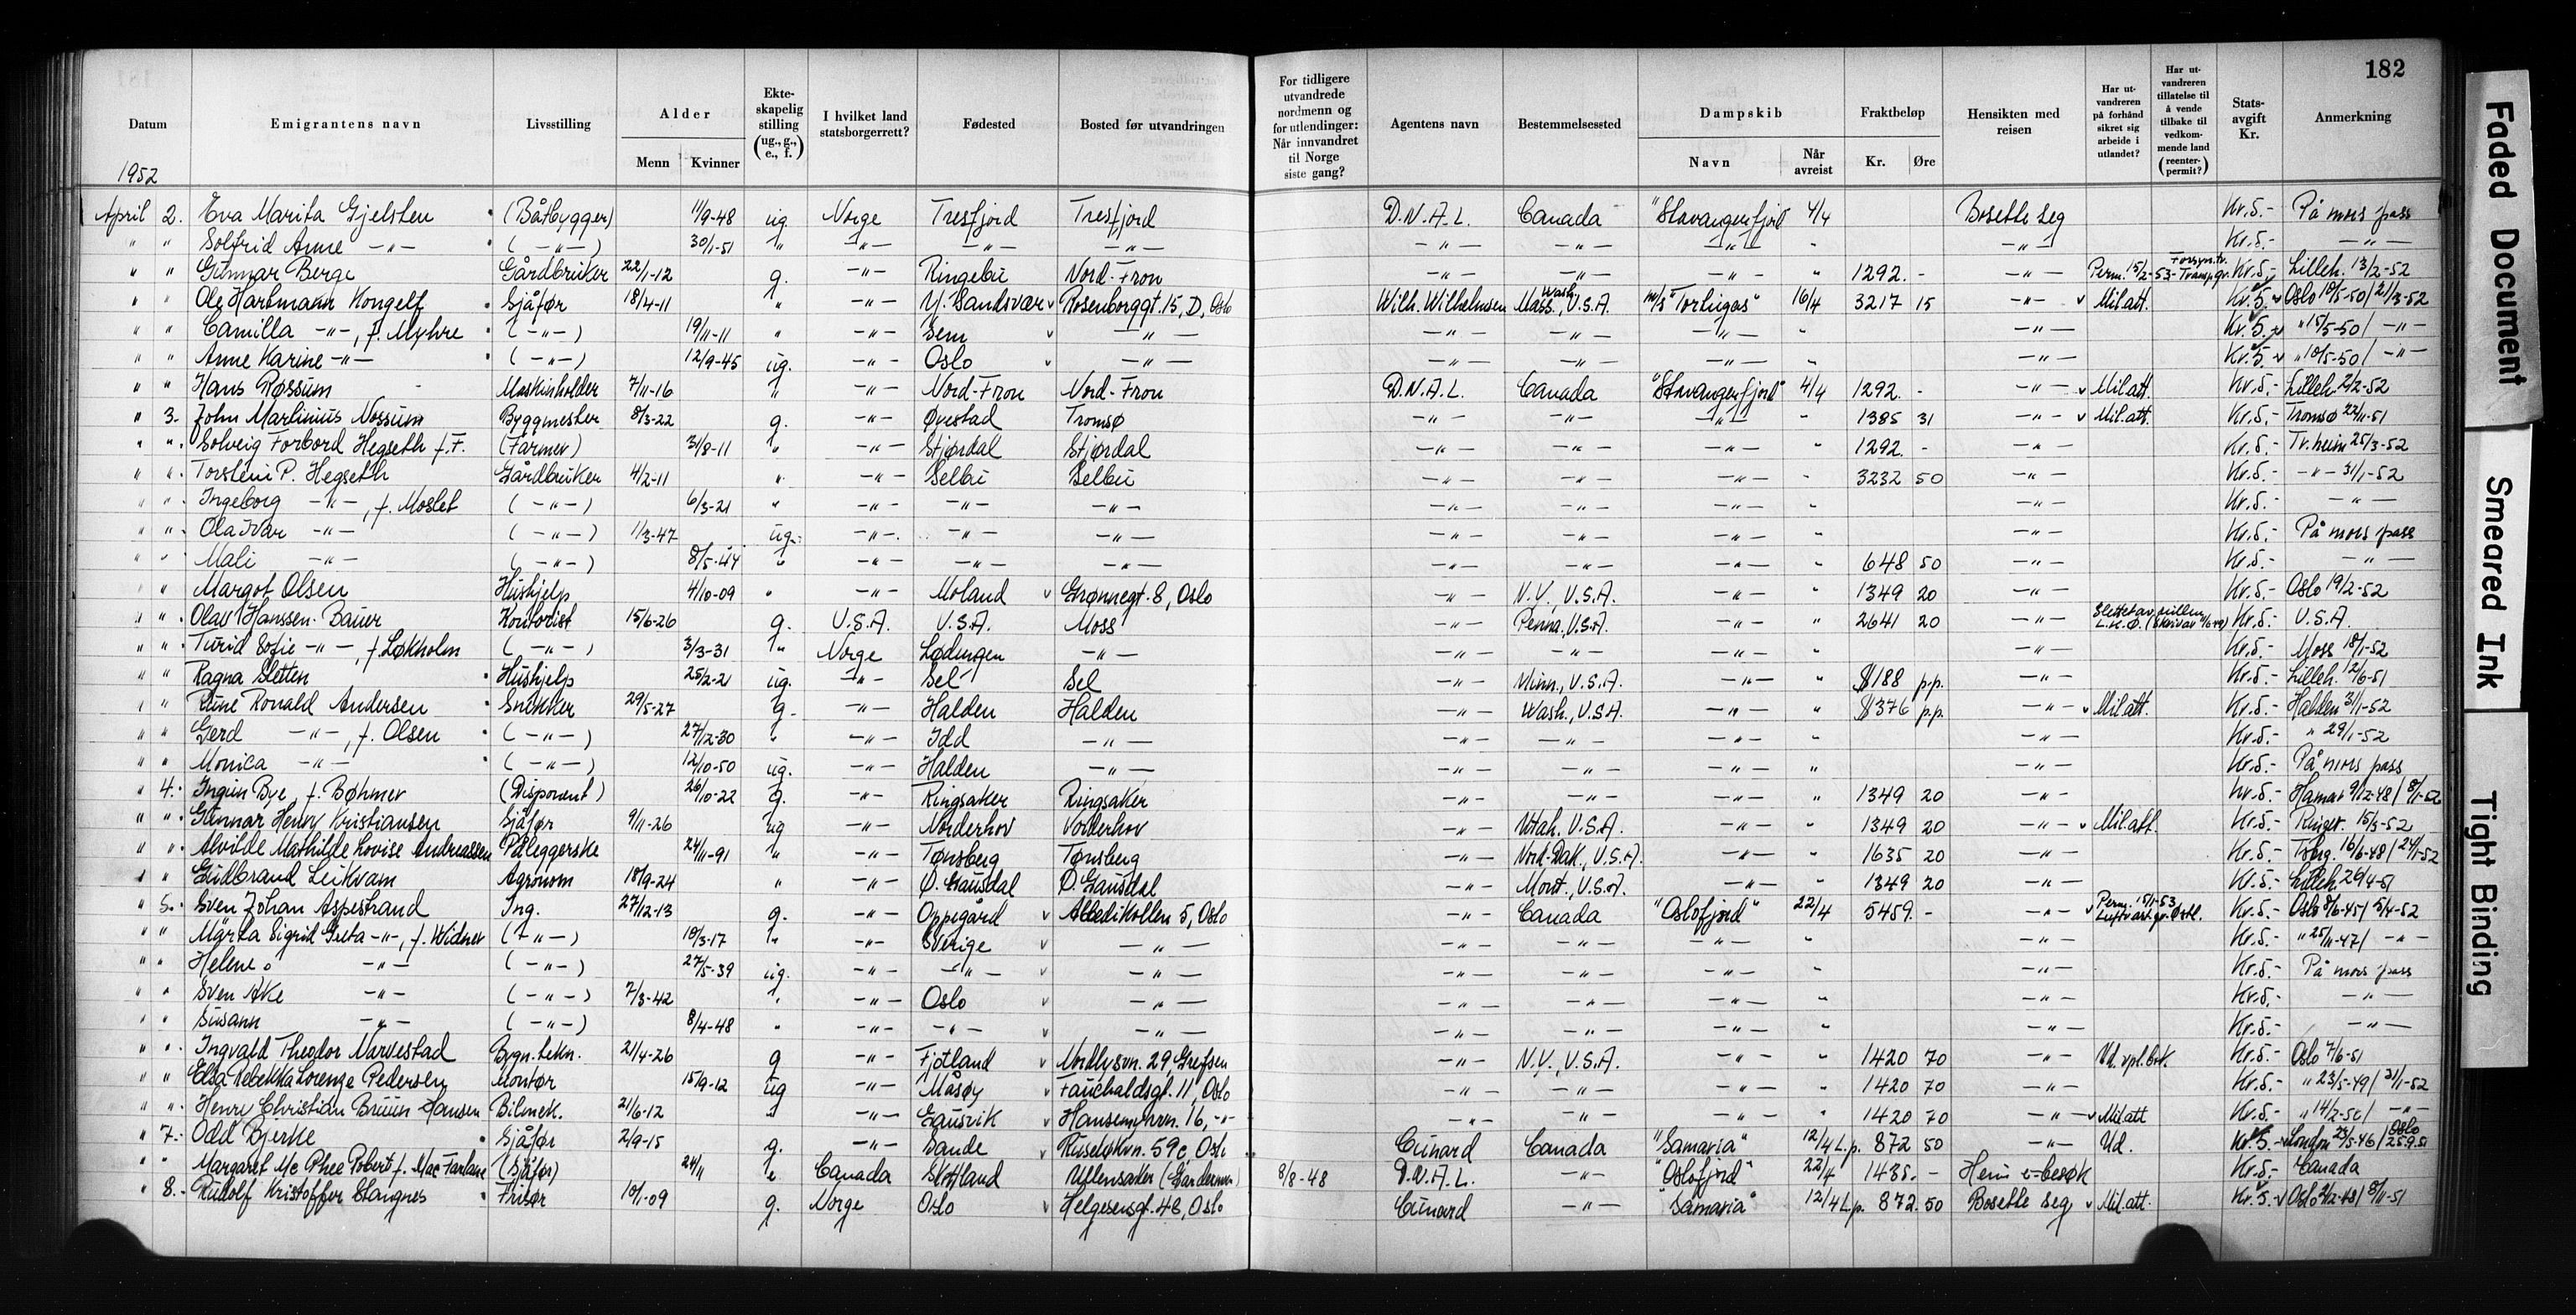 182
Datum
Emigrantens navn
Livsstilling
Alder
Menn
Kvinner
Ekte-skapelig stilling (ug., g., e., f.)
I hvilket land statsborgerrett?
Fødested
Bosted før utvandringen
For tidligere utvandrede nordmenn og for utlendinger: Når innvandret til Norge siste gang?
Agentens navn
Bestemmelsessted
Dampskib
Navn
Når avreist
Fraktbeløp
Kr.
Øre
Hensikten med reisen
Har ut-vandreren på forhånd sikret sig arbeide i utlandet?
Har ut-vandreren tillatelse til å vende tilbake til vedkom-mende land (reenter-permit?)
Stats-avgift Kr.
Anmerkning
1952
April 2. Eva Marita Gjelsten (Båtbygger) 11/9-48 ug. Norge Tresfjord Tresfjord D.N.A.L. Canada "Stavangerfjord" 4/4 Bosette seg Kr.5.- På mors pass
" " Solfrid Anne -"- (-"-) 30/1-51 " -"- -"- -"- -"- -"- -"- " -"- Kr.5.- -"-
" " Gunnar Berge Gårdbruker 22/1-12 g. -"- Ringebu Nord-Fron -"- -"- -"- " 1292.- -"- Perm. 15/2-53 Kr.5.- Lilleh. 13/2-52
" " Ole Hartmann Kongelf Sjåfør 18/4-11 " -"- Y. Sandsvær Rosenborggt. 15, D, Oslo Wilh. Wilhelmsen Mass., Wash. U.S.A. m/s "Tortugas" 16/4 3217 15 -"- Mil.att. Kr.5.- Oslo 10/5-50/21/3-52
" " Camilla -"-, f. Myhre (-"-) 19/11-11 " -"- Sem -"- -"- -"- -"- " -"- Kr.5.- " 15/5-50/ -"-
" " Anne Karine -"- (-"-) 12/9-45 ug. -"- Oslo -"- -"- -"- -"- " -"- Kr.5.- " 10/5-50/ -"-
" " Hans Røssum Maskinholder 7/11-16 " -"- Nord-Fron Nord-Fron D.N.A.L. Canada "Stavangerfjord" 4/4 1292.- -"- Mil.att. Kr.5.- Lilleh. 2/2-52
" 3. John Martinius Nossum Byggmester 8/3-22 g. -"- Øvestad Tromsø -"- -"- -"- " 1385 31 -"- Mil.att. Kr.5.- Tromsø 22/11-51
" " Solveig Forbord Hegseth f. F. (Farmer) 31/8-11 " -"- Stjørdal Stjørdal -"- -"- -"- " 1292.- -"- Kr.5.- Tr.heim 25/3-52
" " Torstein P. Hegseth Gårdbruker 4/2-11 " -"- Selbu Selbu -"- -"- -"- " 3232 50 -"- Kr.5.- -"- 31/1-52
" " Ingeborg -"-, f. Moslet (-"-) 6/3-21 " -"- -"- -"- -"- -"- -"- " -"- Kr.5.- -"-
" " Ola Ivar -"- (-"-) 11/3-47 ug. -"- -"- -"- -"- -"- -"- " -"- Kr.5.- På mors pass
" " Mali -"- (-"-) 8/5-44 " -"- -"- -"- -"- -"- -"- " 648 50 Kr.5.- -"-
" " Margot Olsen Hushjelp 4/10-09 " -"- Moland Grønnegt. 8, Oslo -"- N.Y., U.S.A. -"- " 1349 20 -"- Kr.5.- Oslo 19/2-52
" " Olav Hanssen-Bauer Kontorist 15/6-26 g. U.S.A. U.S.A. Moss -"- Penna., U.S.A. -"- " 2641 20 -"- Slettet av rullen Kr.5.- U.S.A.
" " Turid Sofie -"-, f. Løkholm (-"-) 3/3-31 " Norge Lødingen -"- -"- -"- -"- " -"- Kr.5.- Moss 18/1-52
" " Ragna Sletten Hushjelp 25/2-21 ug. -"- Sel Sel -"- Minn., U.S.A. -"- " $188 p.p. -"- Kr.5.- Lilleh. 12/6-51
" " Rune Ronald Andersen Snekker 29/5-27 g. -"- Halden Halden -"- Wash., U.S.A. -"- " $376 p.p. -"- Mil.att. Kr.5.- Halden 31/1-52
" " Gerd -"-, f. Olsen (-"-) 27/12-30 " -"- Idd -"- -"- -"- -"- " -"- Kr.5.- " 29/1-52
" " Monica -"- (-"-) 12/10-50 ug. -"- Halden -"- -"- -"- -"- " -"- Kr.5.- På mors pass
" 4. Ingun Bye, f. Bøhmer (Disponent) 26/10-22 g. -"- Ringsaker Ringsaker -"- -"- -"- " 1349 20 -"- Kr.5.- Hamar 9/12-48/8/1-52
" " Gunnar Henry Kristiansen Sjåfør 9/11-26 ug -"- Norderhov Norderhov -"- Utah, U.S.A. -"- " 1349 20 -"- Mil.att. Kr.5.- Ringer. 15/3-52
" " Alvilde Mathilde Lovise Andreassen Påleggerske 24/11-91 " -"- Tønsberg Tønsberg -"- Nord-Dak., U.S.A. -"- " 1635 20 -"- Kr.5.- Tbrg. 16/6-48/24/1-52
" " Gudbrand Leikvam Agronom 18/9-24 " -"- Ø. Gausdal Ø. Gausdal -"- Mont., U.S.A. -"- 1349 20 -"- Kr.5.- Lilleh. 29/4-51
" 5. Sven Johan Aspestrand Ing. 27/12-13 g. -"- Oppegård Abbedikollen 5, Oslo -"- Canada "Oslofjord" 22/4 5459.- -"- Perm. 15/1-53 Kr.5.- Oslo 8/6-45/5/4-52
" " Märta Sigrid Greta -"-, f. Widner (-"-) 10/3-17 " -"- Sverige -"- -"- -"- -"- " -"- Kr.5.- " 25/11-47/ -"-
" " Helene -"- (-"-) 27/5-39 ug. -"- -"- -"- -"- -"- -"- " -"- Kr.5.- På mors pass
" " Sven Åke -"- (-"-) 7/3-42 " -"- Oslo -"- -"- -"- -"- " -"- Kr.5.- -"-
" " Susann -"- (-"-) 8/4-48 " -"- -"- -"- -"- -"- -"- " -"- Kr.5.- -"-
" " Ingvald Theodor Narvestad Bygn.tekn. 21/4-26 g -"- Fjotland Nordlysvn. 29, Grefsen -"- N.Y., U.S.A. -"- " 1420 70 -"- Ud. vpl.bok. Kr.5.- Oslo 7/6-51
" " Elsa Rebekka Lorenze Pedersen Montør 15/9-12 ug -"- Måsøy Fauchaldsgt. 11, Oslo -"- -"- -"- " 1420 70 Kr.5.- " 23/5-49/31/1-52
" " Henry Christian Bruun Hansen Bilmek. 21/6-12 " -"- Gausvik 16, -"- -"- -"- -"- " 1420 70 -"- Mil.att Kr.5.- " 14/2-50/ -"-
" 7. Odd Bjerke Sjåfør 2/9-15 g. -"- Sande Ruseløkvn. 59c, Oslo Cunard Canada "Samaria" 12/4 L.p. 872 50 -"- Ud. Kr.5.- London 23/5-46/Oslo 25.9.51
" " Margaret Mc Phee Robert f. Mac Farlane (Sjåfør) 24/11 e Canada Skottland Ullensaker (Gardermoen) 8/8-48 D.N.A.L. -"- "Oslofjord" 22/4 1435.- Hem e. besøk Kr.5.- Canada
" 8. Rudolf Kristoffer Stangnes Frisør 10/1-09 g. Norge Oslo Helgesensgt. 48, Oslo Cunard -"- "Samaria" 12/4 L.p. 872.50 Bosette seg Mil.att. Kr.5.- Oslo 2/12-48/8/11-51
Faded Document
Smeared Ink
Tight Binding